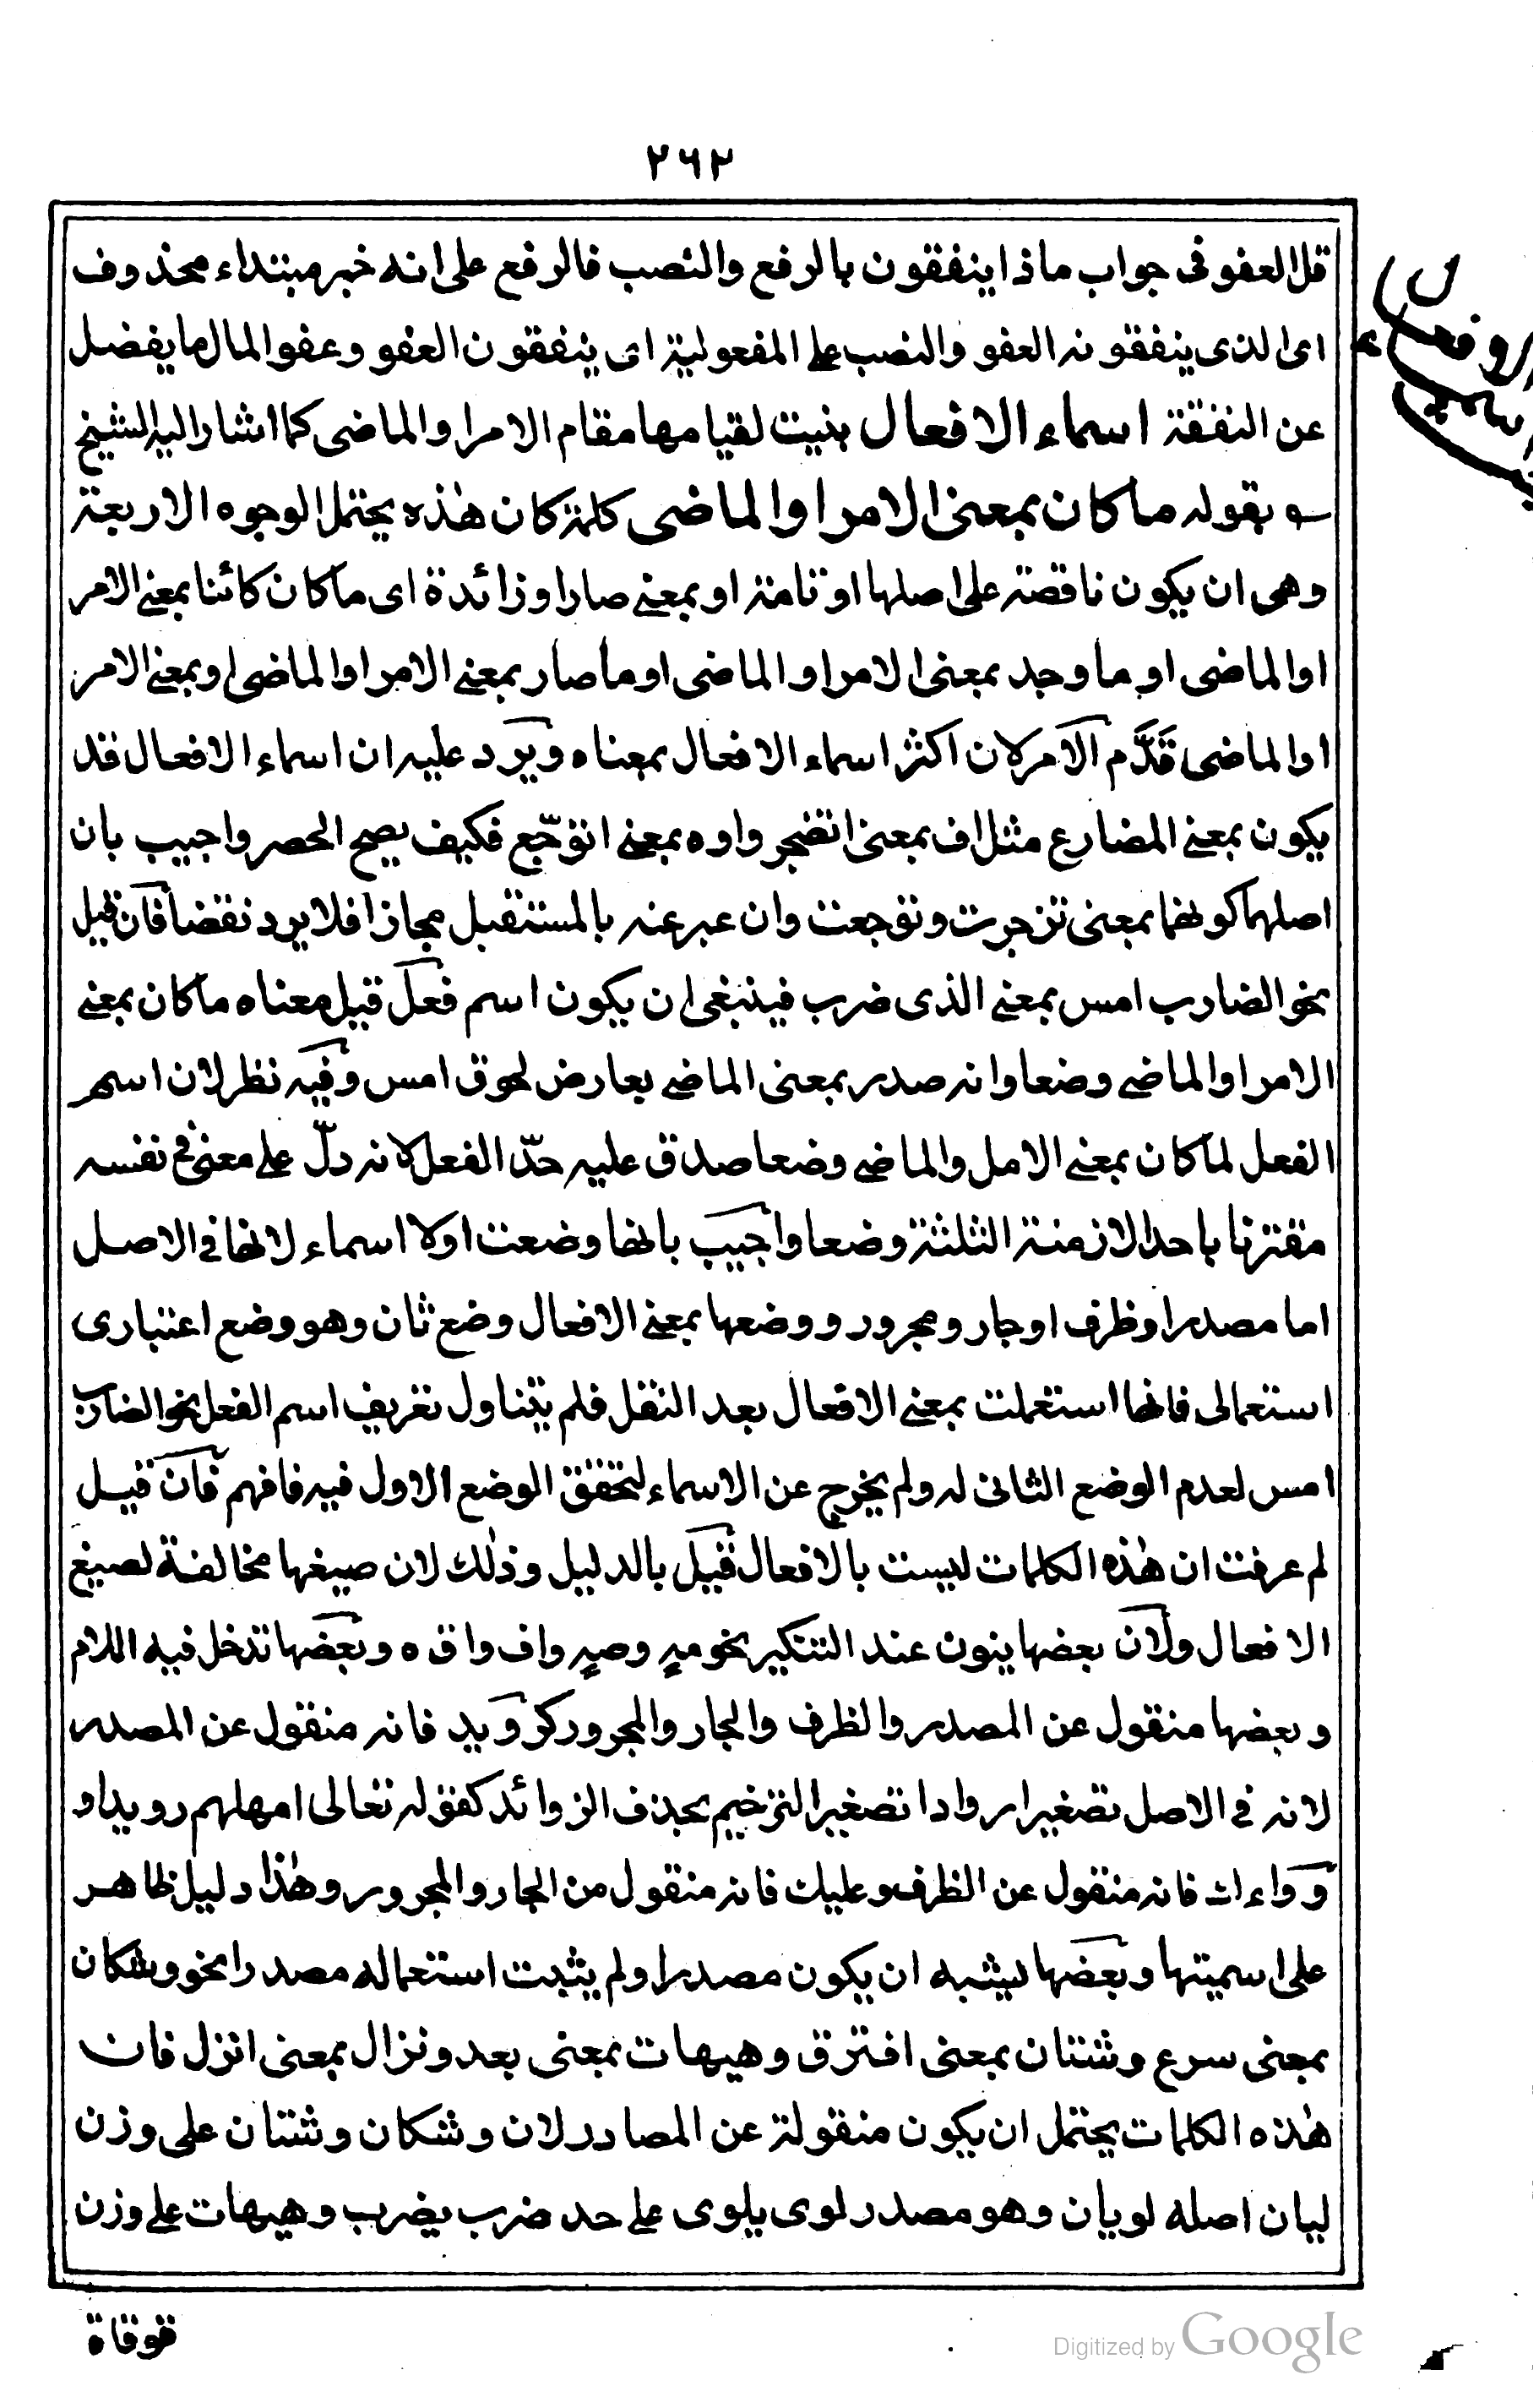 ٢٦٢
قل العفو فى جواب ماذا ينفقون بالرفع والنصب فالرفع على انه خبر مبتداء محذوف
اى الذى ينفقونه العفو والنصب على المفعولية اى ينفقون العفو وعفو المال ما يفضل
عن النفقة اسماء الافعال بنيت لقيامها مقام الامر او الماضى كما اشار اليه الشيخ
بقوله ما كان بمعنى الامر او الماضى كلمة كان هذه يحتمل الوجوه الاربعة
وهى ان يكون ناقصة على اصلها او تامة او بمعنى صار او زائدة اى ما كان كائنا بمعنى الامر
او الماضى او ما وجد بمعنى الامر او الماضى او ما صار بمعنى الامر او الماضى او بمعنى الامر
او الماضى قدَّم الامر لان اكثر اسماء الافعال بمعناه ويرد عليه ان اسماء الافعال قد
يكون بمعنى المضارع مثل اف بمعنى اتضجر واوه بمعنى اتوجّع فكيف يصح الحصر واجيب بان
اصلهما كونهما بمعنى تزجرت وتوجعت وان عبر عنه بالمستقبل مجازا فلا يرد نقضا فان قيل
نحو الضارب امس بمعنى الذى ضرب فينبغى ان يكون اسم فعل قيل معناه ما كان بمعنى
الامر او الماضى وضعا وانه صدر بمعنى الماضى بعارض لحوق امس وفيه نظر لان اسم
الفعل لما كان بمعنى الامل والماضى وضعا صدق عليه حدّ الفعل لانه دلّ على معنى فى نفسه
مقترنا باحد الازمنة الثلثة وضعا واجيب بانها وضعت اولا اسماء لانها فى الاصل
اما مصدر او ظرف او جار ومجرور ووضعها بمعنى الافعال وضع ثان وهو وضع اعتبارى
استعمالى فانها استعملت بمعنى الافعال بعد النقل فلم يتناول تعريف اسم الفعل نحو الضارب
امس لعدم الوضع الثانى له ولم يخرج عن الاسماء لتحقق الوضع الاول فيه فافهم فان قيل
لم عرفت ان هذه الكلمات ليست بالافعال قيل بالدليل وذلك لان صيغها مخالفة لصيغ
الافعال ولان بعضها ينون عند التنكير نحو مهٍ وصهٍ واف واق ه وبعضها تدخل فيه اللام
وبعضها منقول عن المصدر والظرف والجار والمجرور كرويد فانه منقول عن المصدر
لانه فى الاصل تصغير ارواد اتصغير الترخيم بحذف الزوائد كقوله تعالى امهلهم رويدا و
وراءك فانه منقول عن الظرف وعليك فانه منقول من الجار والمجرور وهذا دليل ظاهر
على اسميتها وبعضها يشبه ان يكون مصدرا ولم يثبت استعماله مصدرا نحو وشكان
بمعنى سرع وشتان بمعنى افترق وهيهات بمعنى بعد ونزال بمعنى انزل فان
هذه الكلمات يحتمل ان يكون منقولة عن المصادر لان وشكان وشتان على وزن
ليان اصله لويان وهو مصدر لوى يلوى على حد ضرب يضرب وهيهات على وزن
قوقاة
Digitized by Google